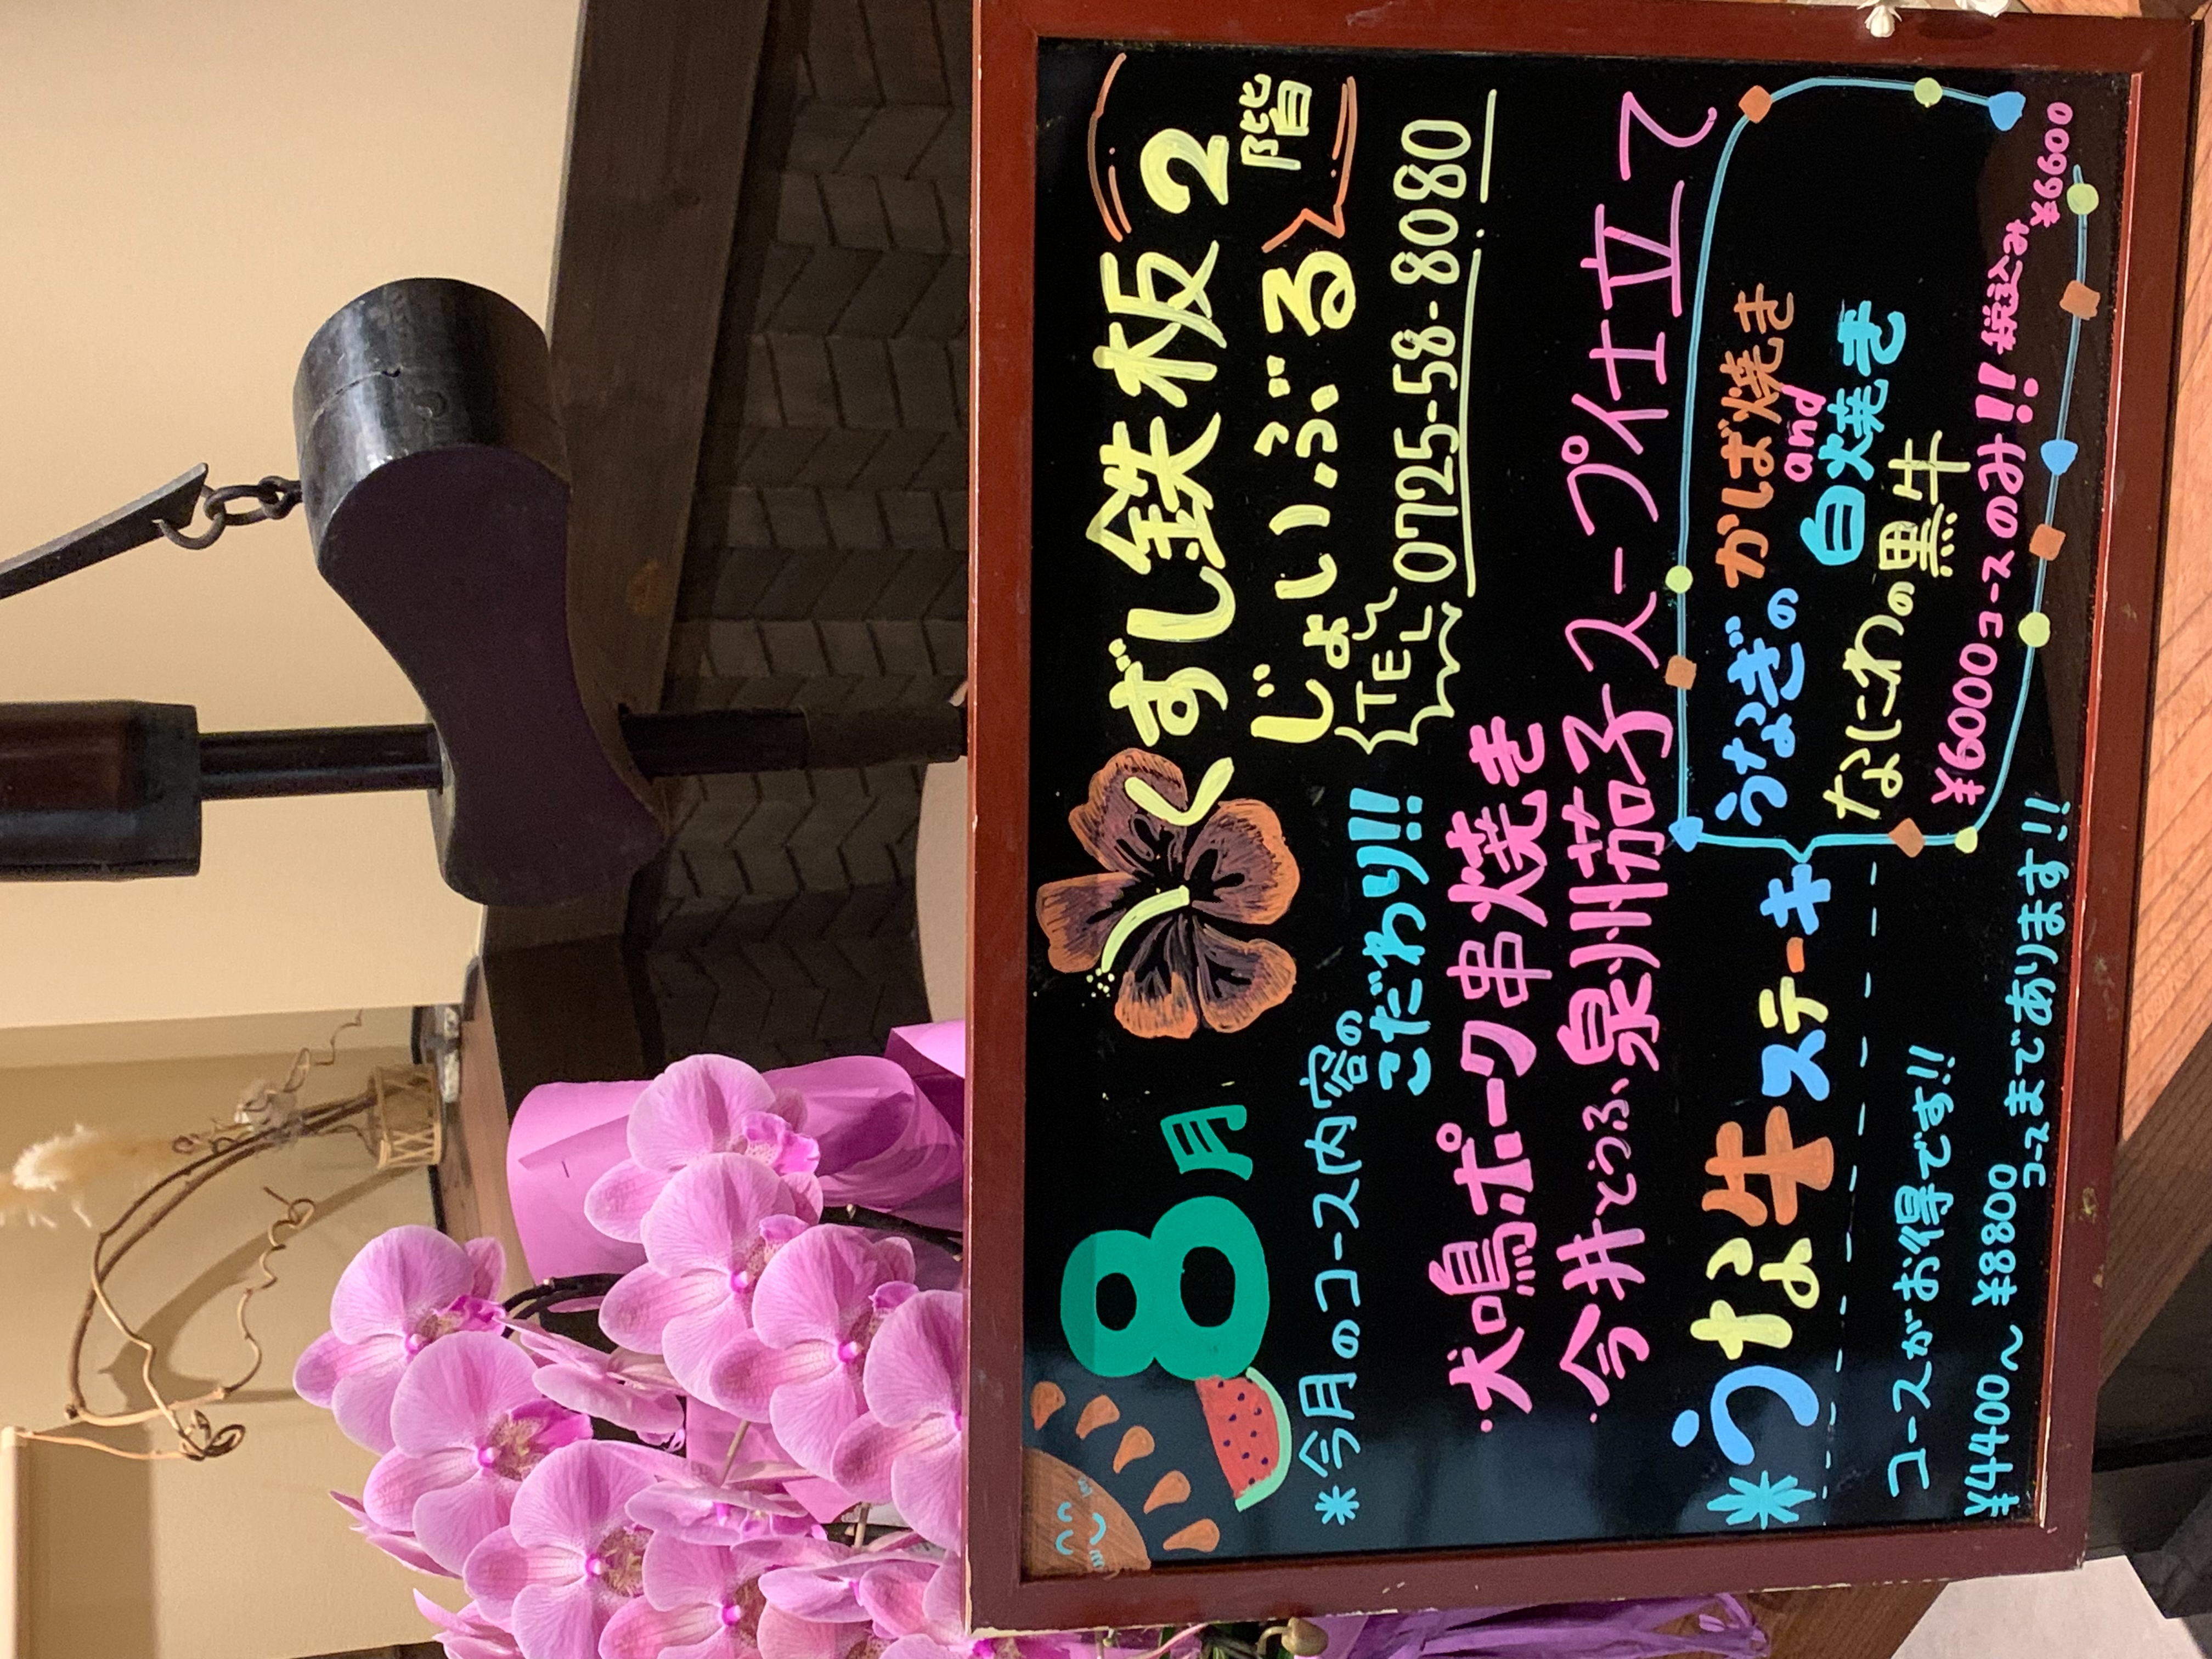 8月
くずし鉄板
2階
じょいふる
TEL 0725-58-8080
*今月のコース内容の
こだわり!!
・犬鳴ポーク串焼き
・今井とうふ 泉州茄子スープ仕立て
*うな牛ステーキ
うなぎの かば焼き
and
白焼き
なにわの黒牛
¥6000コースのみ!! 税込 ¥6600
コースがお得です!!
¥4400～¥8800
コースまであります!!